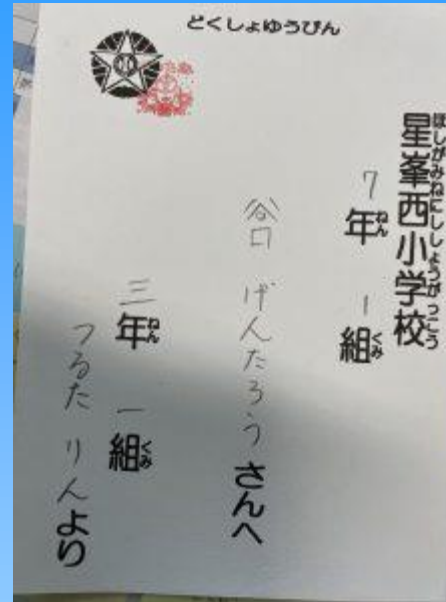 どくしょゆうびん
星峯西小学校
ほしがみねにししょうがっこう
7年 1組
ねん くみ
谷口 げんたろうさんへ
三年 一組
ねん くみ
つるた りんより